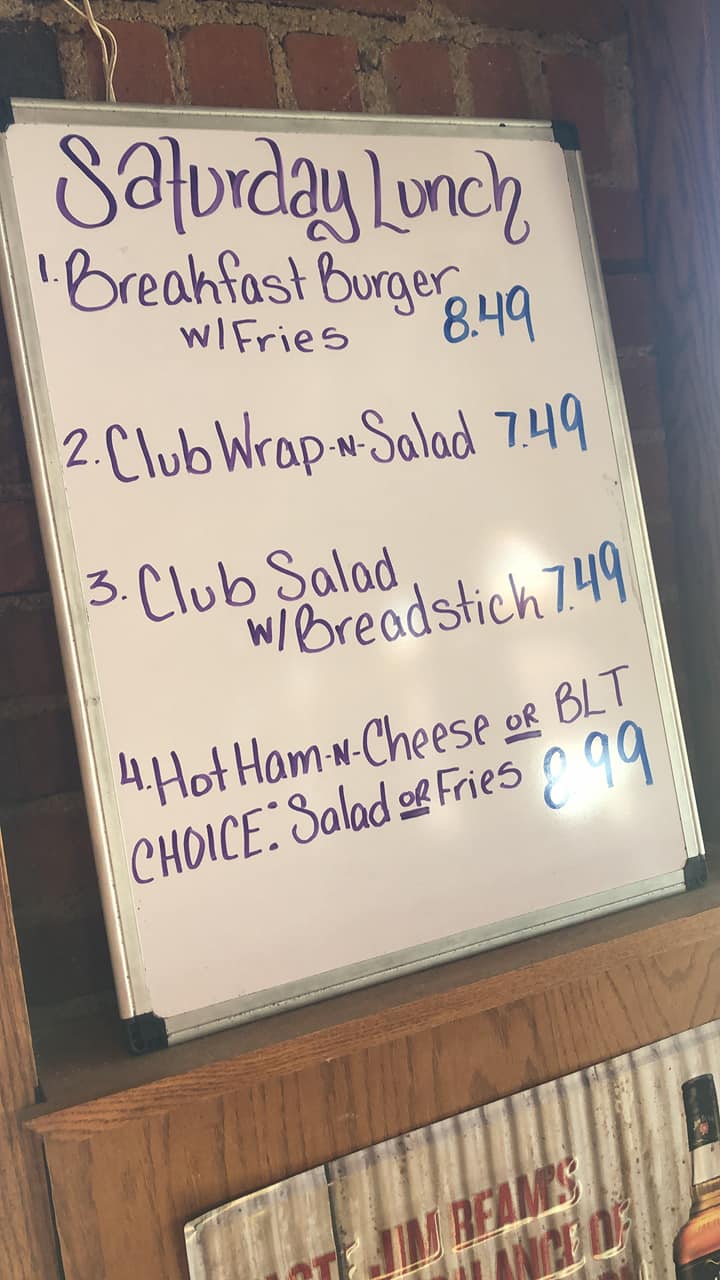 Saturday Lunch
1. Breakfast Burger
w/Fries 8.49
2. Club Wrap-N-Salad 7.49
3. Club Salad
w/Breadstick 7.49
4. Hot Ham-N-Cheese OR BLT
CHOICE: Salad OR Fries 8.99
JIM BEAM'S
OF